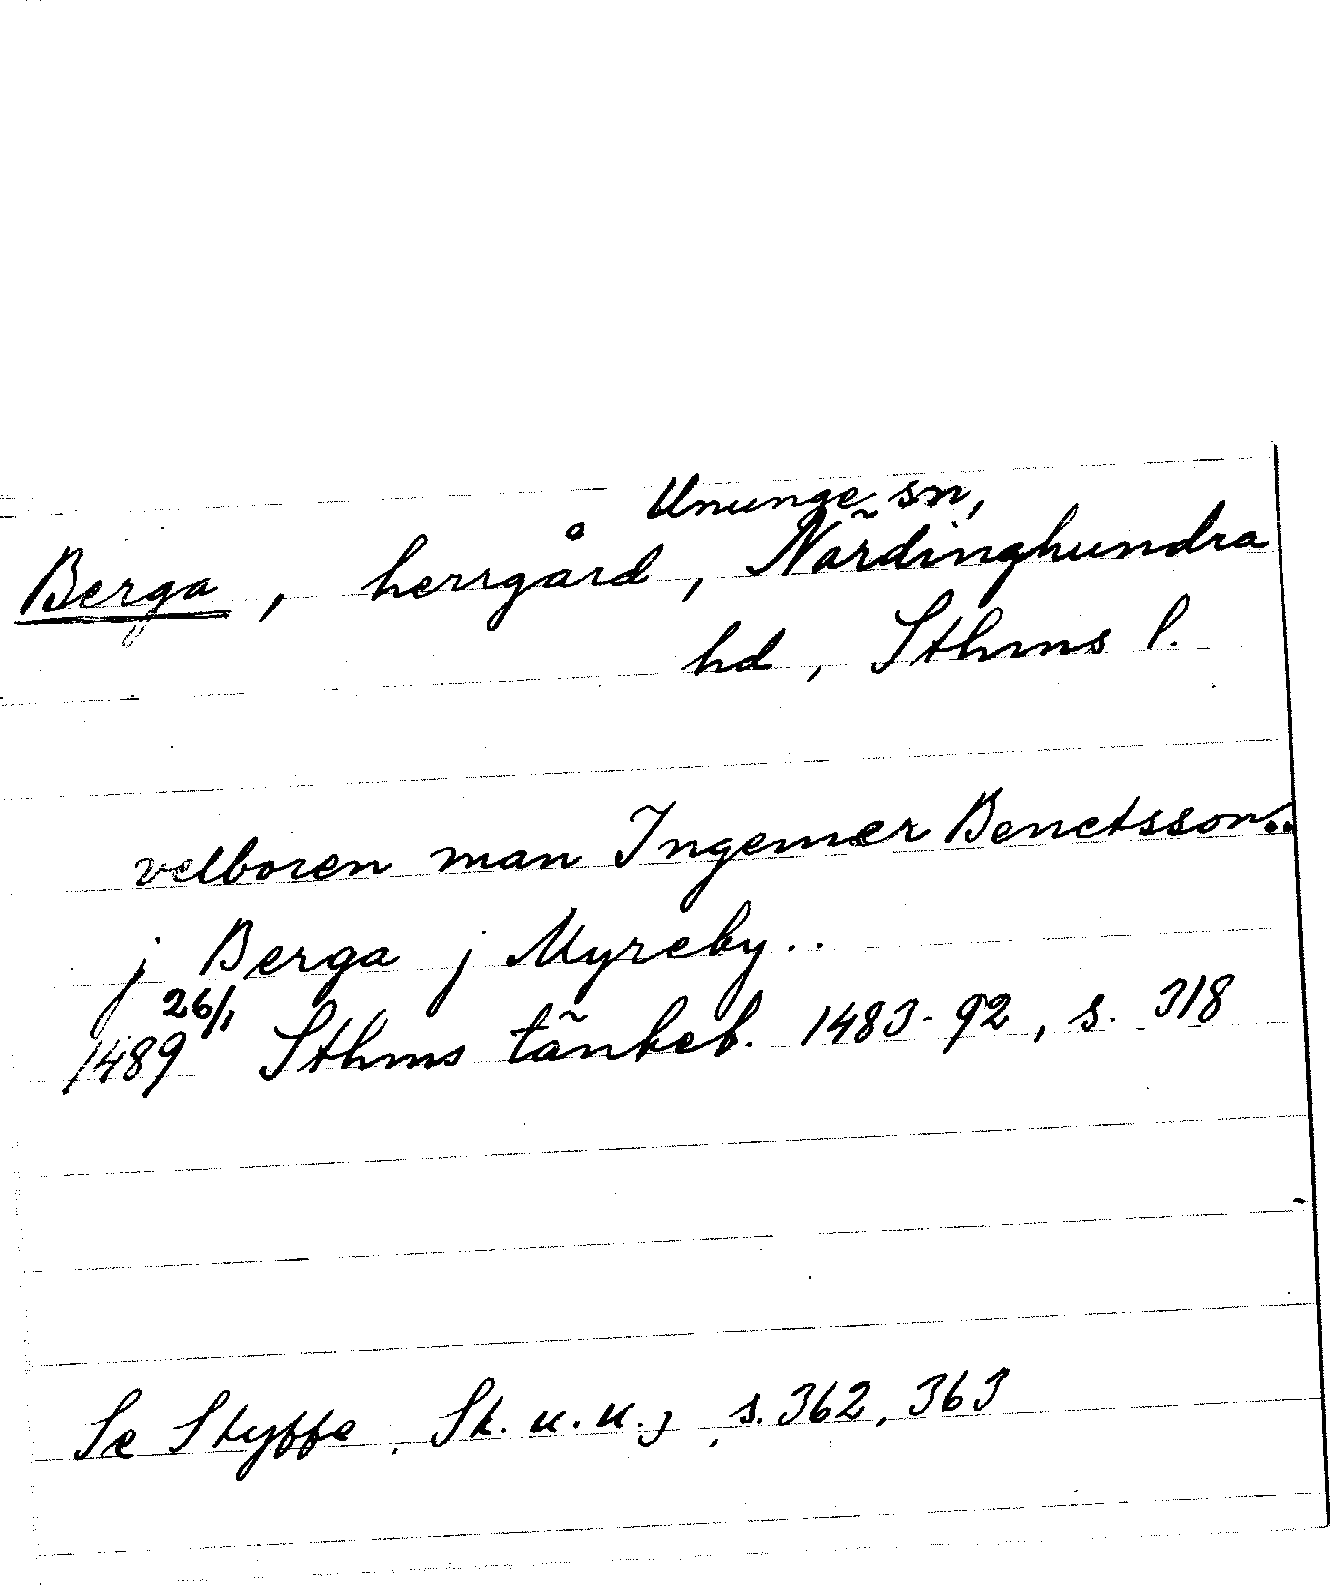 Ununge sn,
Berga, herrgård, Närdinghundra
hd, Sthms l.
velboren man Ingemer Benctsson..
j Berga j Myreby..
26/1
1489 Sthms tänkeb. 1483-92, s. 318
Se Styffe, Sk. u. u., s. 362, 363